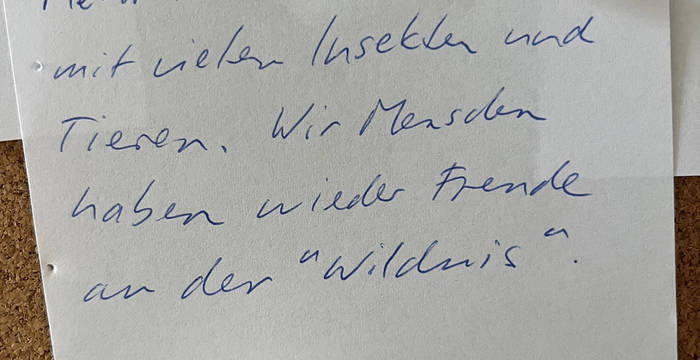 mit vielen Insekten und
Tieren. Wir Menschen
haben wieder Freude
an der "Wildnis".